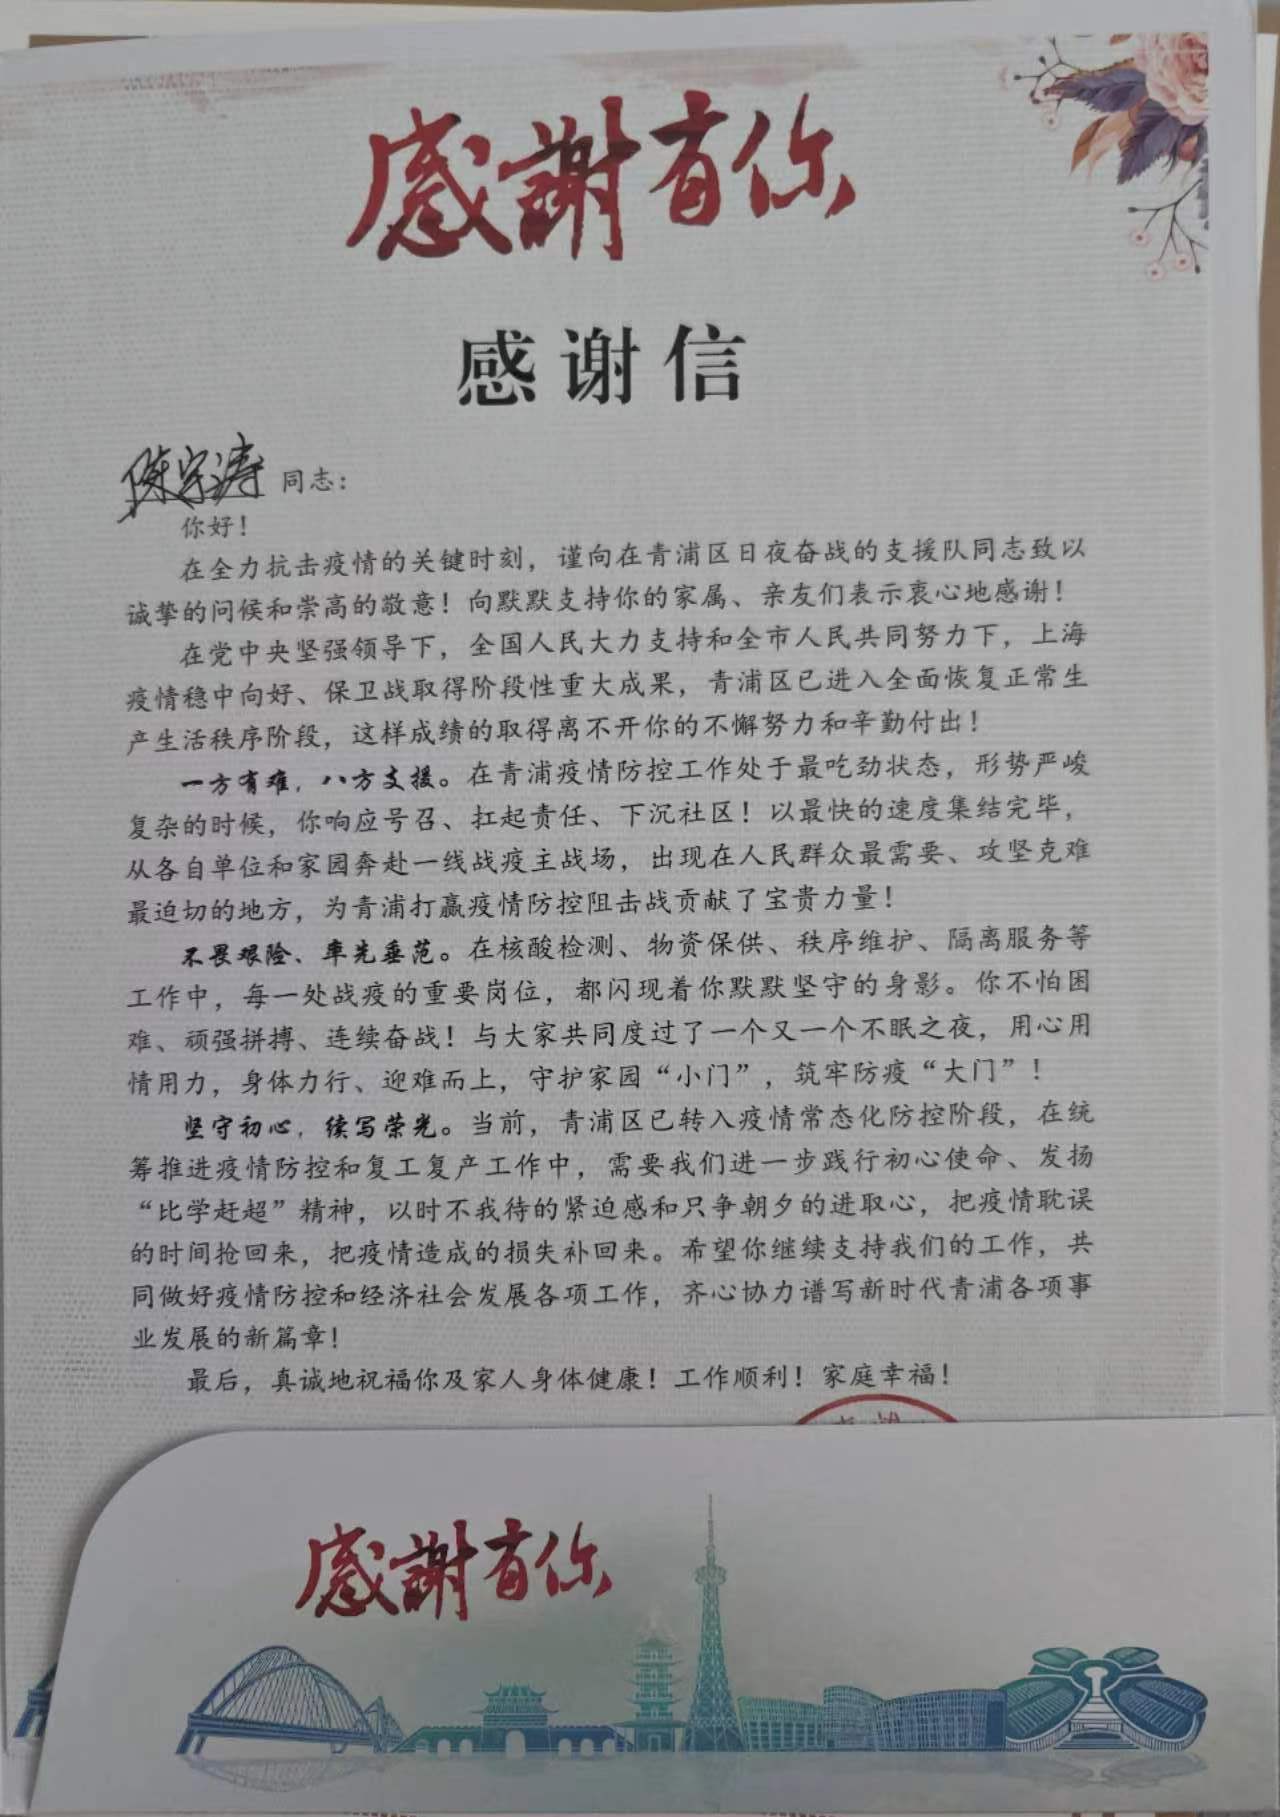 感謝有你
感谢信
陈宇涛 同志：
你好！
在全力抗击疫情的关键时刻，谨向在青浦区日夜奋战的支援队同志致以
诚挚的问候和崇高的敬意！向默默支持你的家属、亲友们表示衷心地感谢！
在党中央坚强领导下，全国人民大力支持和全市人民共同努力下，上海
疫情稳中向好、保卫战取得阶段性重大成果，青浦区已进入全面恢复正常生
产生活秩序阶段，这样成绩的取得离不开你的不懈努力和辛勤付出！
一方有难，八方支援。在青浦疫情防控工作处于最吃劲状态，形势严峻
复杂的时候，你响应号召、扛起责任、下沉社区！以最快的速度集结完毕，
从各自单位和家园奔赴一线战疫主战场，出现在人民群众最需要、攻坚克难
最迫切的地方，为青浦打赢疫情防控阻击战贡献了宝贵力量！
不畏艰险、率先垂范。在核酸检测、物资保供、秩序维护、隔离服务等
工作中，每一处战疫的重要岗位，都闪现着你默默坚守的身影。你不怕困
难、顽强拼搏、连续奋战！与大家共同度过了一个又一个不眠之夜，用心用
情用力，身体力行、迎难而上，守护家园“小门”，筑牢防疫“大门”！
坚守初心，续写荣光。当前，青浦区已转入疫情常态化防控阶段，在统
筹推进疫情防控和复工复产工作中，需要我们进一步践行初心使命、发扬
“比学赶超”精神，以时不我待的紧迫感和只争朝夕的进取心，把疫情耽误
的时间抢回来，把疫情造成的损失补回来。希望你继续支持我们的工作，共
同做好疫情防控和经济社会发展各项工作，齐心协力谱写新时代青浦各项事
业发展的新篇章！
最后，真诚地祝福你及家人身体健康！工作顺利！家庭幸福！
感謝有你